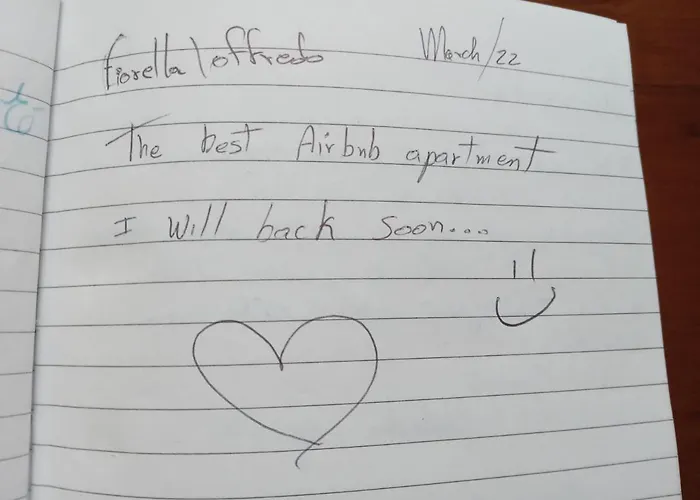 fiorella \ offredo March/22
The best Airbnb apartment
I will back soon...